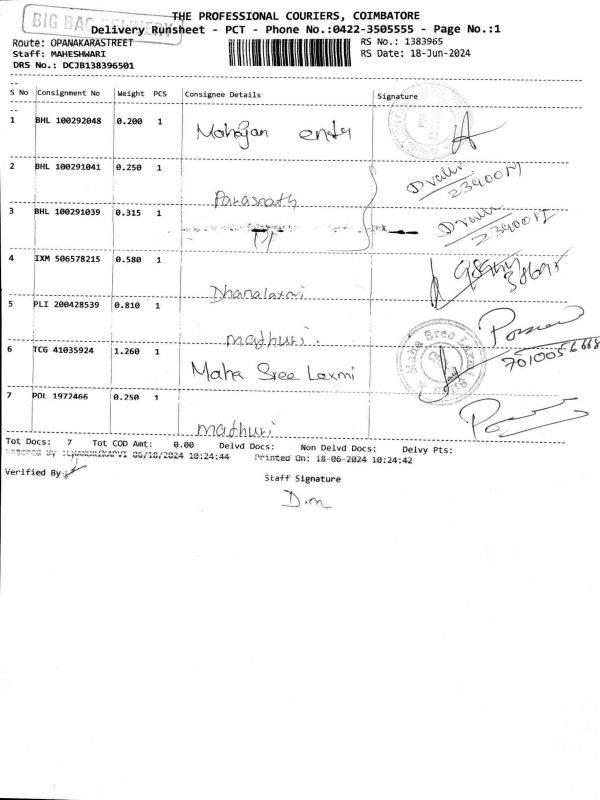 BIG BAG DELIVERY
THE PROFESSIONAL COURIERS, COIMBATORE
Delivery Runsheet - PCT - Phone No.:0422-3505555 - Page No.:1
Route: OPANAKARASTREET
RS No.: 1383965
Staff: MAHESHWARI
RS Date: 18-Jun-2024
DRS No.: DCJB138396501
S No Consignment No Weight PCS Consignee Details Signature
1 BHL 100292048 0.200 1 Mahajan
2 BHL 100291041 0.250 1 Parasnath
3 BHL 100291039 0.315 1
4 IXM 506578215 0.580 1 Dhanalaxmi
5 PLI 200428539 0.810 1 mathuri.
6 TCG 41035924 1.260 1 Maha Sree Laxmi
7 POL 1972466 0.250 1 mathuri
Tot Docs: 7 Tot COD Amt: 0.00 Delvd Docs: Non Delvd Docs: Delvy Pts:
06/18/2024 10:24:44 Printed On: 18-06-2024 10:24:42
Verified By:
Staff Signature
D.m